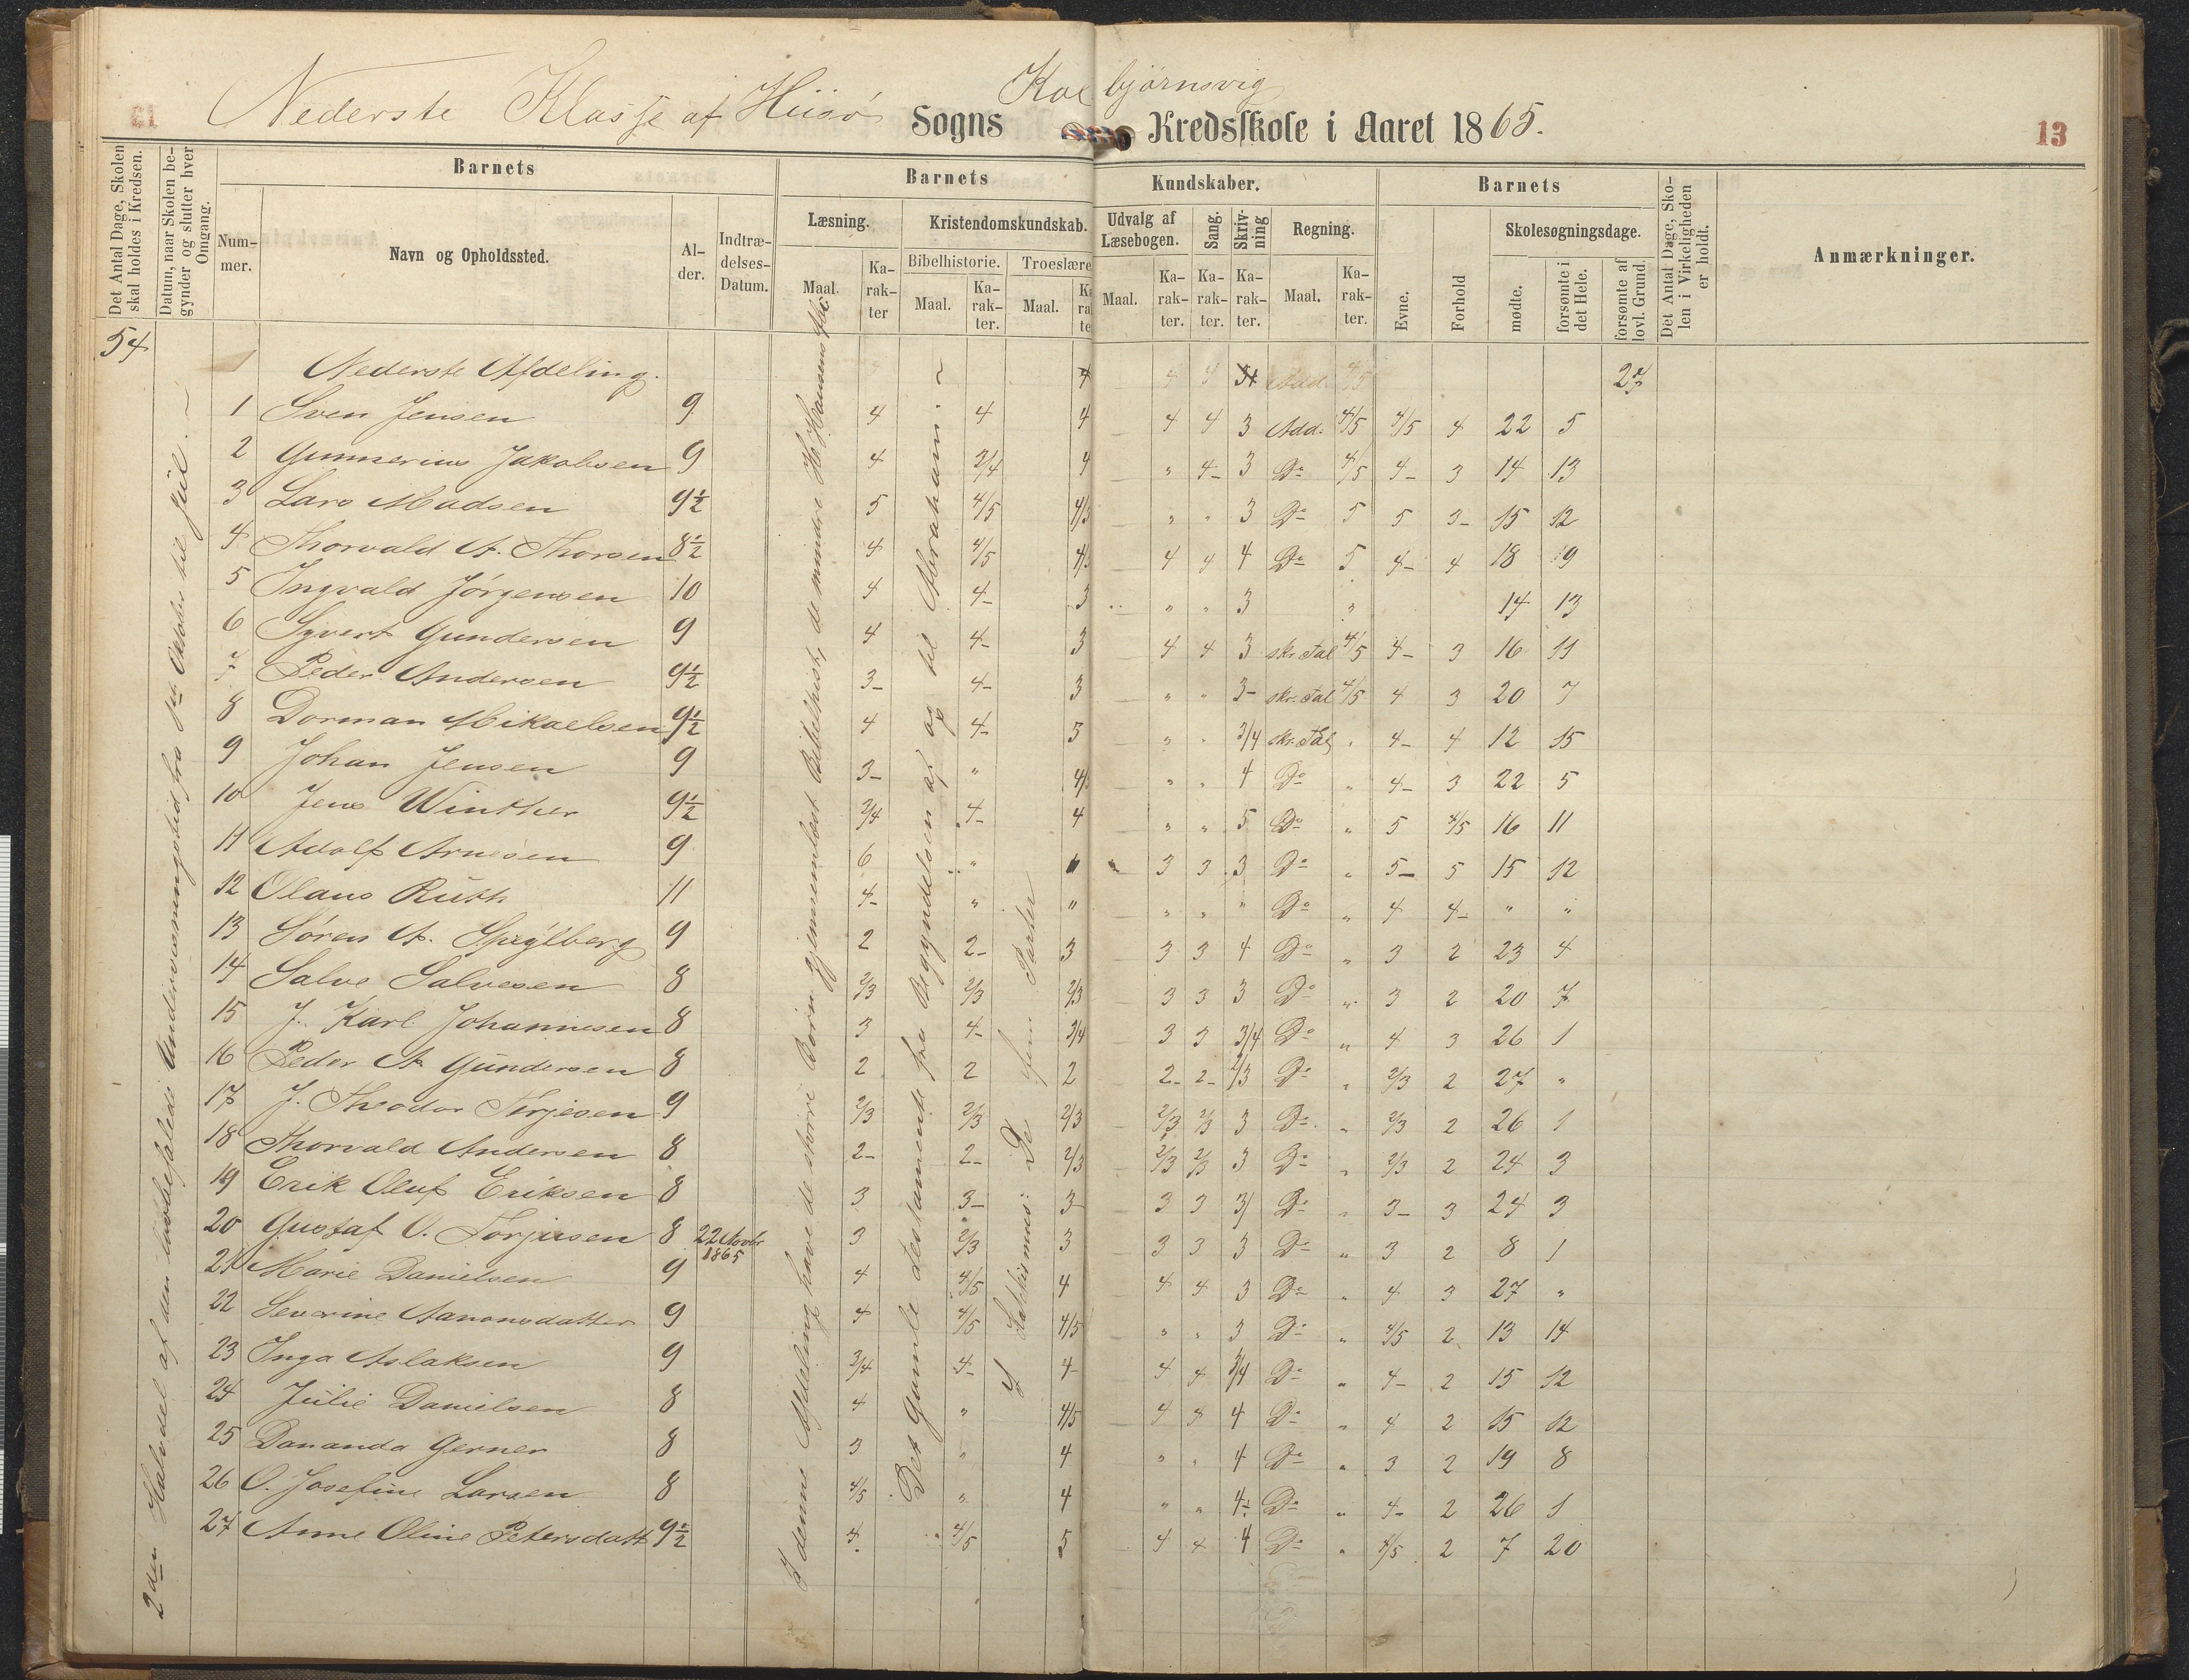 Nederste Klasse af Hiisø Sogns Kolbjørnsvig Kredsskole i Aaret 1865.
13
Det Antal Dage, Skolen skal holdes i Kredsen.
Datum, naar Skolen begynder og slutter hver Omgang.
Barnets
Barnets
Kundskaber.
Barnets
Det Antal Dage, Skolen i Virkeligheden er holdt.
Anmærkninger.
Nummer.
Navn og Opholdssted.
Alder.
Indtrædelses-Datum.
Læsning.
Kristendomskundskab.
Udvalg af Læsebogen.
Sang.
Skrivning
Regning.
Evne.
Forhold
Skolesøgningsdage.
Maal.
Karakter
Bibelhistorie.
Troeslære
Maal.
Karakter.
Maal.
Maal.
Karakter.
Karakter.
Karakter.
Maal.
Karakter.
mødte.
forsømte i det Hele.
forsømte af lovl. Grund.
54
Nederste Afdeling.
27
1 Sven Jensen 9 4 4 4 4 4 3 Add: 4/5 4/5 4 22 5
2 Gunnerius Jakobsen 9 4 3/4 4 " 4- 3 Do 4/5 4- 3 14 13
3 Lars Madsen 9½ 5 4/5 4/5 " " 3 Do 5 5 3- 15 12
4 Thorvald A. Thorsen 8½ 4 4/5 4/5 4 4 4 Do 5 4- 4 18 9
5 Ingvald Jörgensen 10 4 4- 3 " " 3 " 14 13
6 Syvert Gundersen 9 4 4- 3 4 4 3 skr. Tal 4/5 4- 3 16 11
7 Peder Andersen 9½ 3- 4- 3 " " 3- skr. Tal 4/5 4 3 20 7
8 Dorman Mikaelsen 9½ 4 4- 5 " " 3/4 skr. Tal " 4- 4 12 15
9 Johan Jensen 9 3- " 4/5 " " 4 Do " 4- 3 22 5
10 Jens Winther 9½ 3/4 4- 4 " " 5 Do " 5 4/5 16 11
11 Adolf Arnesen 9 6 " " 3 3 3 Do " 5- 5 15 12
12 Olaus Ruth 11 4- " " " " " Do " 4 4- " "
13 Sören A. Spiglberg 9 2 2- 3 3 3 4 Do " 3 2 23 4
14 Salve Salvesen 8 2/3 2/3 2/3 3 3 3 Do " 3 2 20 7
15 J. Karl Johannesen 8 3 4- 3/4 3 3 3/4 Do " 4 3 26 1
16 Peder A. Gundersen 8 2 2 2 2- 2- 2/3 Do " 2/3 2 27 "
17 J. Theodor Terjesen 9 2/3 2/3 2/3 2/3 2/3 3 Do " 2/3 2 26 1
18 Thorvald Andersen 8 2- 2- 2/3 2/3 2/3 3 Do " 2/3 2 24 3
19 Erik Oluf Eriksen 8 3 3- 3- 3 3 3/ Do " 3- 3 24 3
20 Gustaf O. Torjusen 8 22 Novbr 1865 3 2/3 3 3 3 3 Do " 3 2 8 1
21 Marie Danielsen 9 4 4/5 4 4 4 3 Do " 4 3 27 "
22 Severine Aanonsdatter 9 4 4/5 4/5 " " 3 Do " 4/5 2 13 14
23 Inga Aslaksen 9 3/4 4- 4- 4 4 3/4 Do " 4- 2 15 12
24 Julie Danielsen 8 4 " 4/5 4 4 4 Do " 4 2 15 12
25 Dananda Gerner 8 3 " 4 " " 4 Do " 3 2 19 8
26 O. Josefine Larsen 8 4/5 " 4 " " 4- Do " 4- 2 26 1
27 Anne Oline Petersdatt 9½ 4 4/5 5 4 4 4 Do " 4/5 2 7 20
2den Halvdel af den lovbefalede Undervisningstid fra 1ste Oktober til Jul.
I denne Afdeling have de större Börn gjennemläst Bibelhist, de mindre H. Hansens Abc
Det Gamle Testamente fra Begyndelsen af og til Abraham.
I Katkismus: De fem Parter